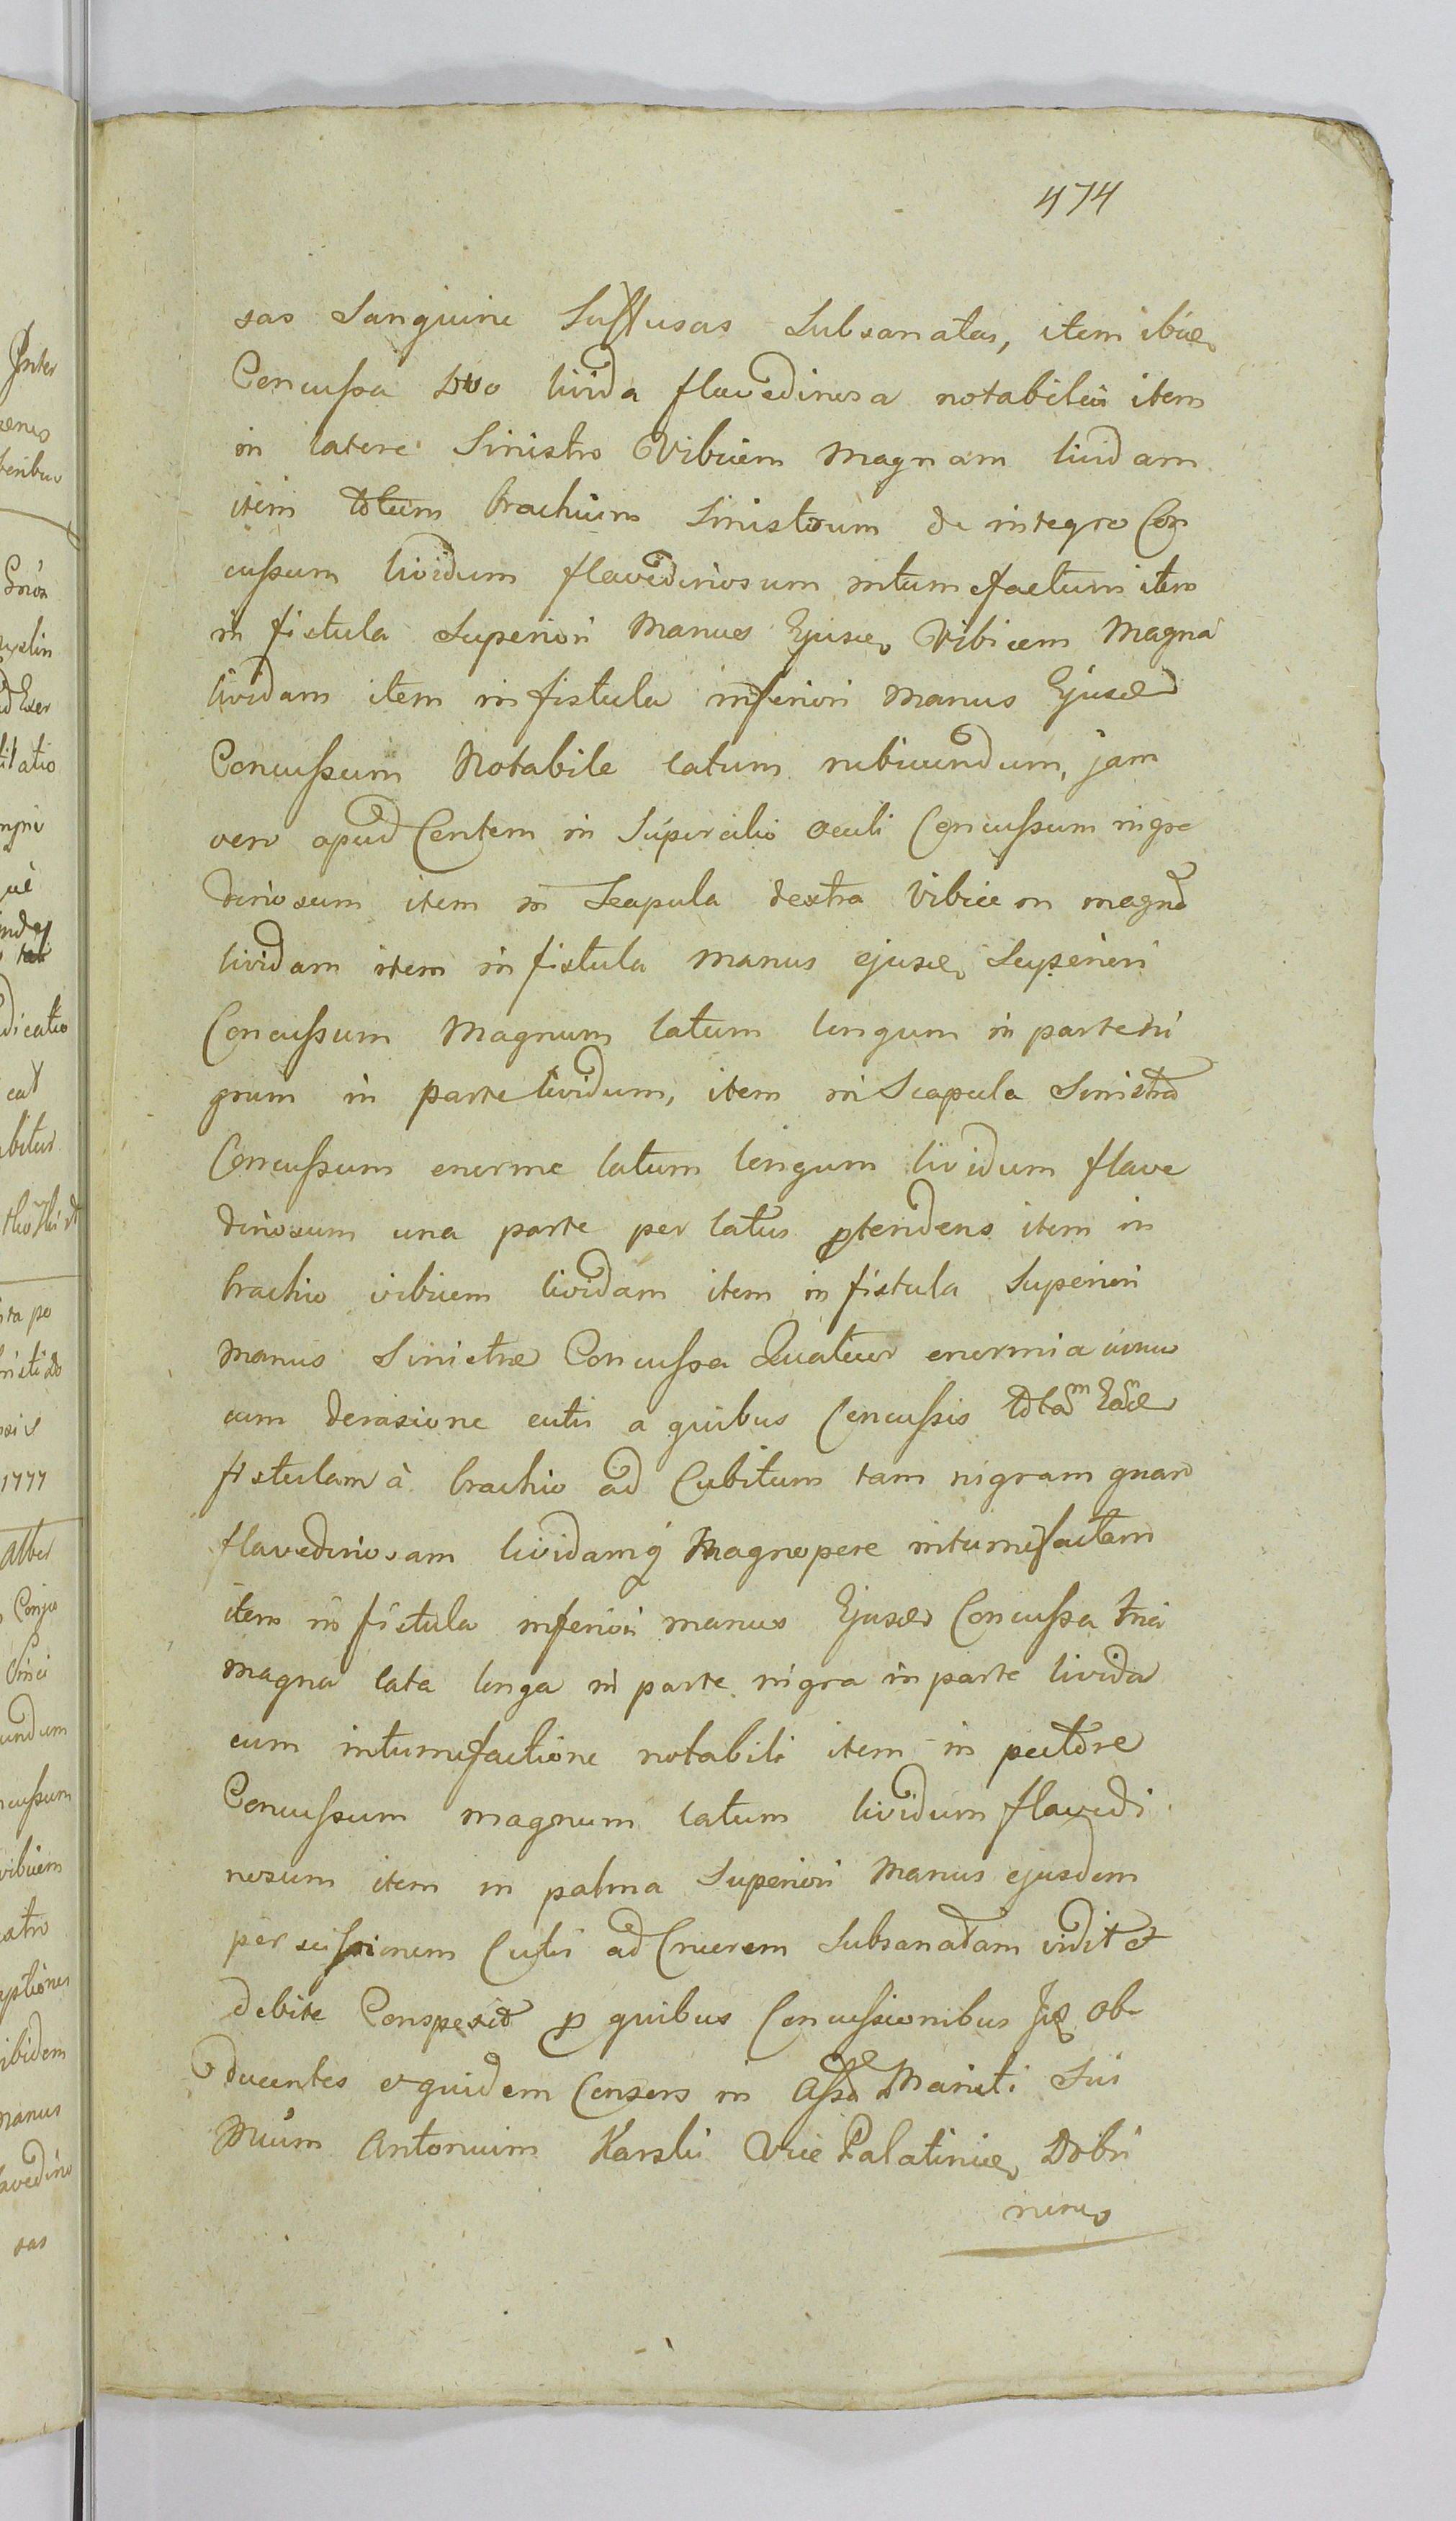 474
sas Sanguine Suffusas Subsanatas, item ibid
Concussa Duo livida flavedinosa notabilia item
in latere Sinistro Vibicem Magnam lividam
item totum brachium Sinistrum de integro Con
cussum lividum flavedinosum intumefactum item
in fistula Superiori Manus Ejusd Vibicem Magna
lividam item in fistula inferiori Manus Ejusd
Concussum Notabile latum rubicundum, jam
vero apud Centem in Supercilio oculi Concussum nigre
dinosum item in Scapula dextra Vibicem magna
lividam item in fistula manus ejusd Superiori
Concussum Magnum latum longum in parte ni
grum in parte lividum, item in Scapula Sinistra
Concussum enorme latum longum lividum flave
dinosum una parte per latus ptendens item in
brachio vibicem lividam item in fistula Superiori
manus Sinistræ Concussa Quatuor enormia
cum derasione cutis a quibus Concussis totam Eand
fistulam à brachio ad Cubitum tam nigram quam
flavedinosam lividamq Magnopere intumefactam
item in fistula inferiori manus Ejusd Concussa tria
magna lata longa in parte nigra in parte livida
cum intumefactione notabili item in pectore
Concussum magnum latum lividum flavedi
nosum item in palma Superiori Manus ejusdem
perscissionem Cutis ad Cruorem Subsanatam vidit et
debite Conspexit p quibus Concussionibus Sic ob
ducentes et quidem Censens in Assa Mariti Sui
Mcum Antonium Karski Vice Palatinid Dobri
nens
Inter
1777
ibidem
manus
sas